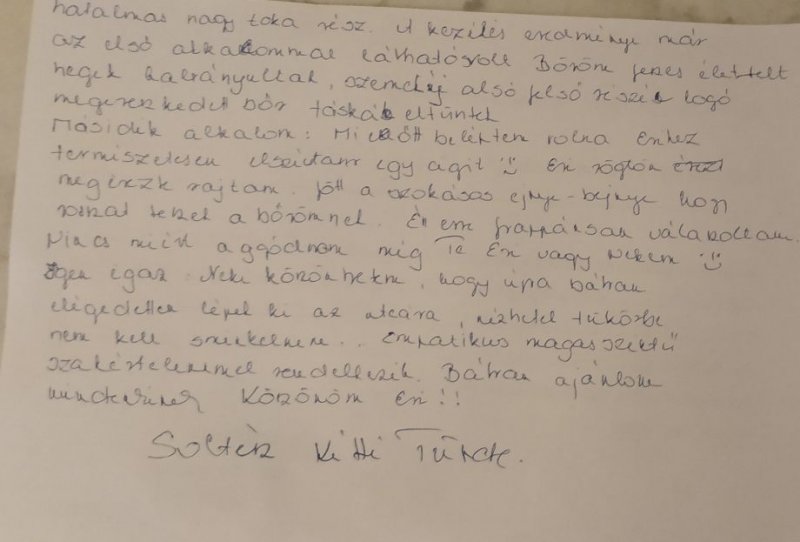 hatalmas nagy toka rész. A kezelés eredménye már
az első alkalommal látható volt Bőröm feszes élettelt
hegek halványultak, szemhéj alsó felső részek logó
megereszkedett bőr táskák eltűntek
Második alkalom: Mielőtt beléptem volna Enhez
természetesen elszívtam egy cigit Eni rögtön
megérzik rajtam. Jött a szokásos ejnye-bejnye hogy
rosszat teszel a bőrömnek. És erre frappánsan válaszoltam.
Nincs miért aggódnom míg Te Eni vagy nekem
Igen igaz. Neki köszönhetem, hogy újra bátran
elégedetten lépek ki az utcára, nézhetek tükörbe
nem kell sminkelnem.. Empatikus magas szintű
szakértelemmel rendelkezik. Bátran ajánlom
mindenkinek Köszönöm Eni!!
Soltész Kitti Tünde.